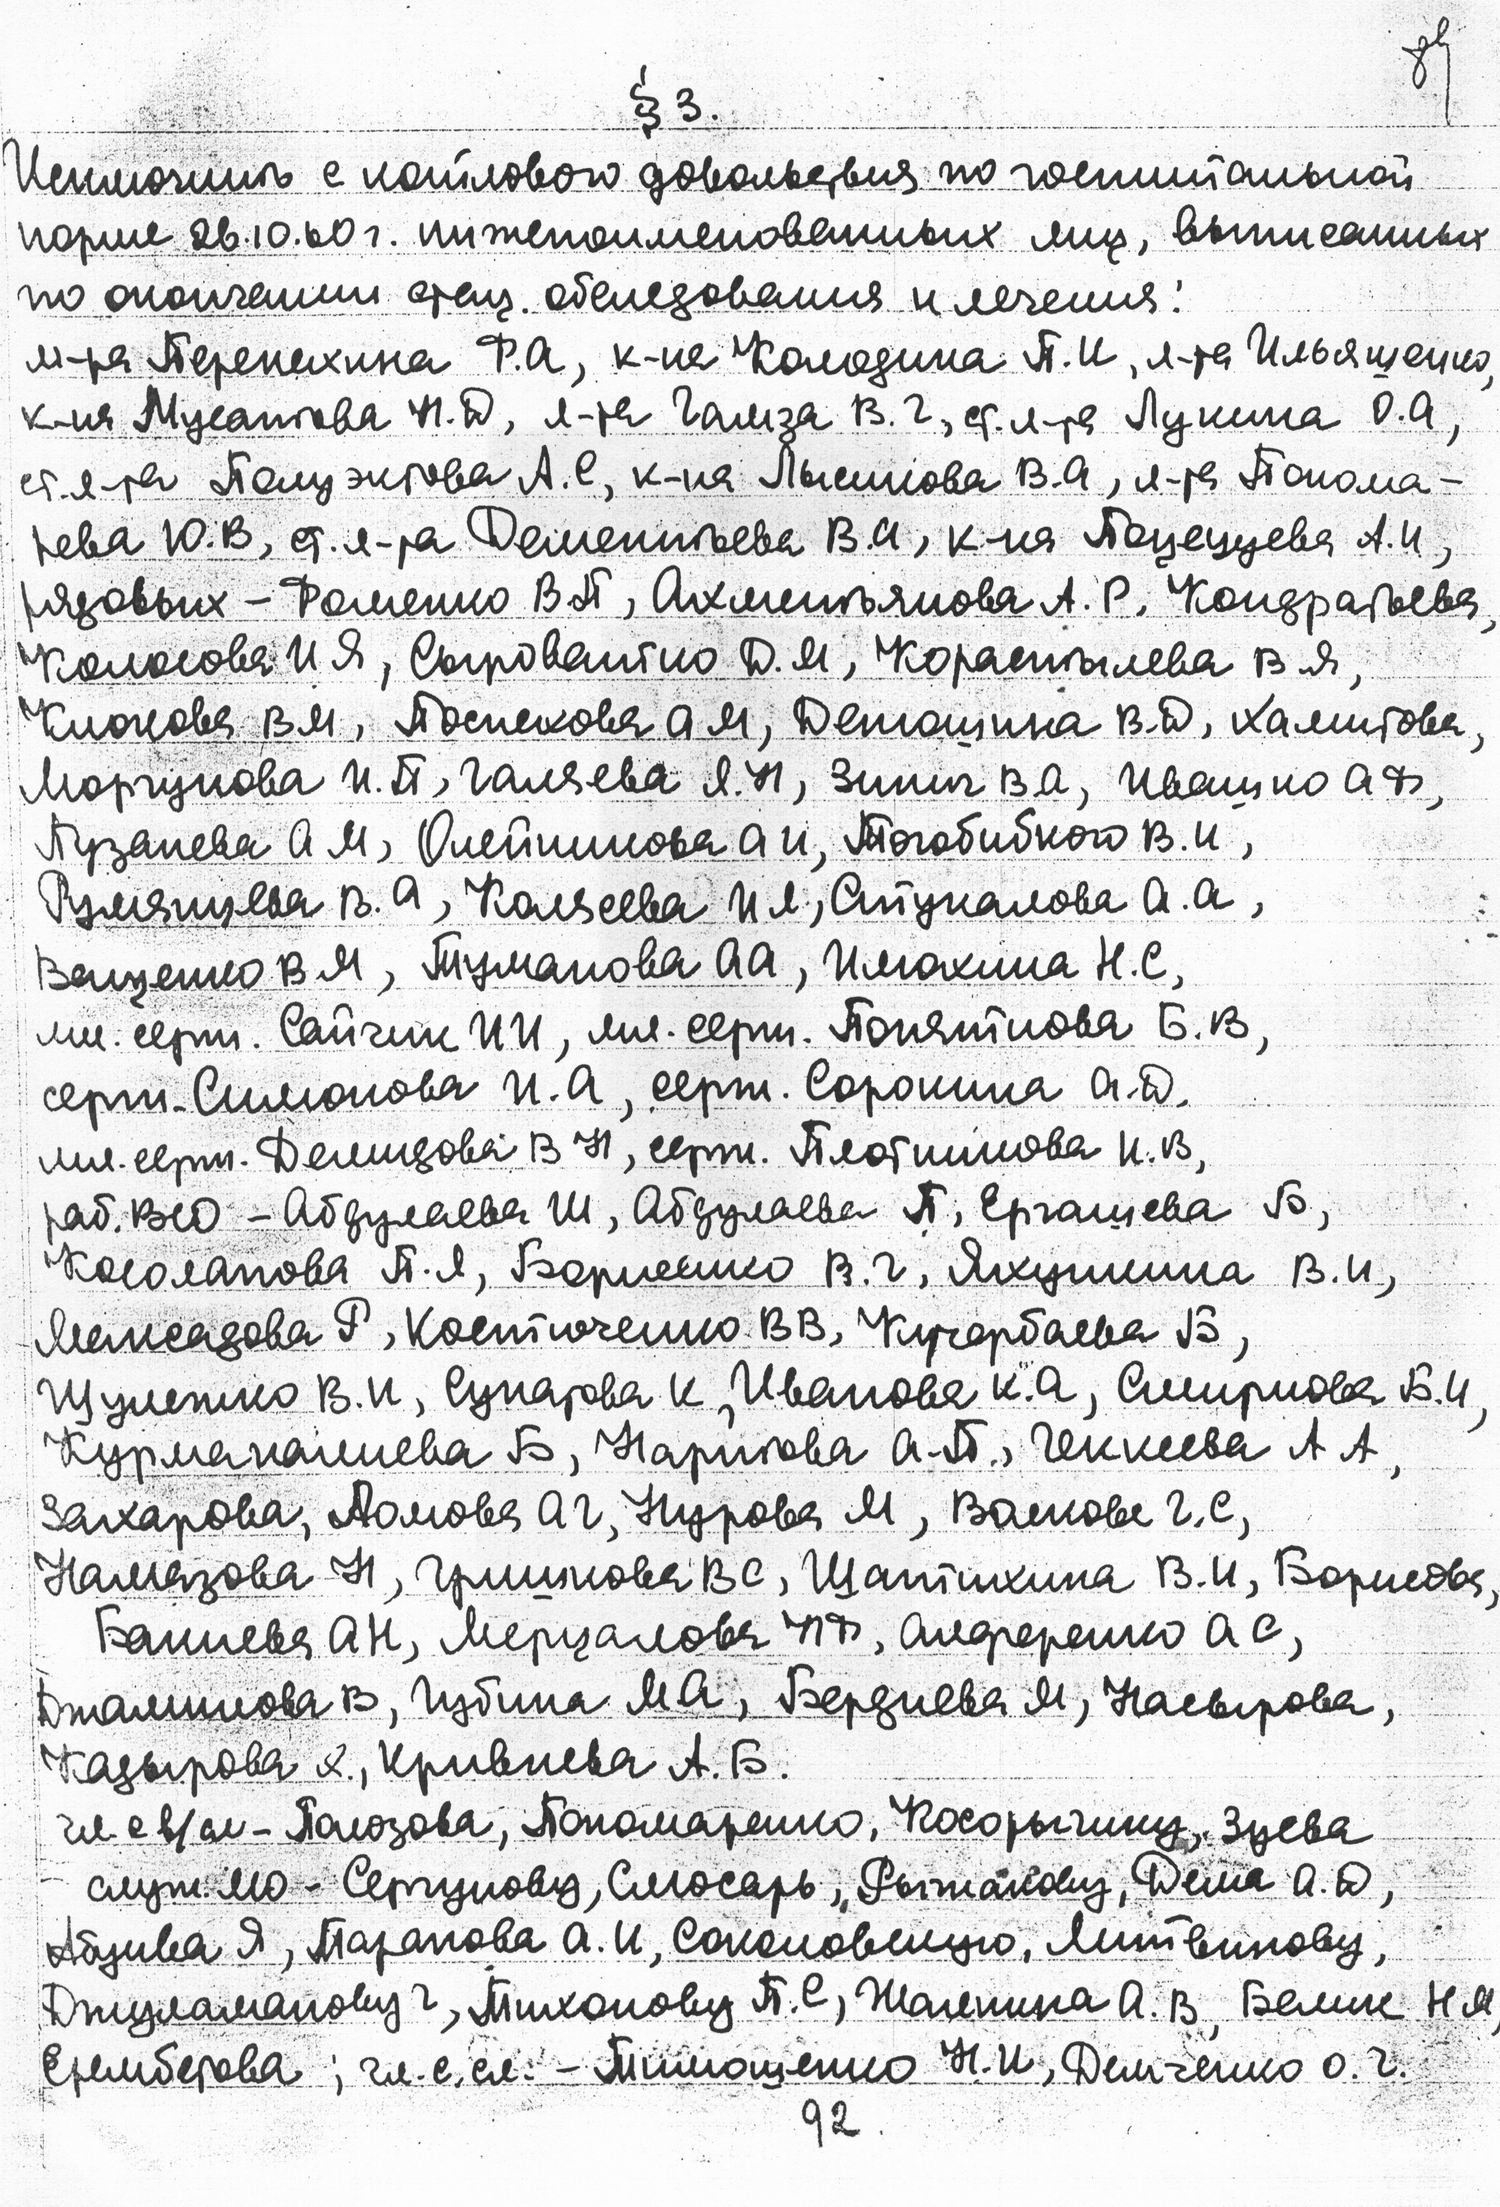 § 3.
Исключить с котлового довольствия по госпитальной
норме 26.10.60 г. нижепоименованных лиц, выписанных
по окончании стац. обследования и лечения:
м-ра Перепехина Ф.А, к-на Колодина П.И, л-та Ильяшенко,
к-на Мусатова Н.Д, л-та Гамза В.Г, ст. л-та Лукина О.А,
ст. л-та Полуэктова А.С, к-на Лысикова В.А, л-та Понома-
рева Ю.В, ст. л-та Дементьева В.И, к-на Поцелуева А.И,
рядовых - Фоменко В.П, Ахметьянова А.Р. Кондратьева,
Колосова И Я, Сыроватко Д.М, Корастылева В Я,
Клокова ВМ, Поспехова А М, Детошина В.Д, Хамитова,
Моргунова И.П, Галяева Я.Н, Зинич В А, Ивашко А Ф,
Пузанева А М, Олейникова А И, В.И,
Румянцева В. А, Коляеева И Я, Стукалова А. А,
Ващенко В М, Туманова А А, Имохина Н.С,
мл. серж. Сайчик И И, мл. серж. Поняткова Б.В,
серж. Симонова И.А, серж. Сорокина А.Д.
мл. серж. Демидова В Н, серж. Плотникова И.В,
раб. ВСО - Абдулаева Ш, Абдулаева П, Ергашева Б,
Косолапова П.Я, Борисенко В.Г, Яхункина В.И,
Мансадова Р, Костюченко ВВ, Кучербаева Б,
Щулепко В.И, Супатова К, Иванова К.А, Смирнова Б.И,
Курманалиева Б, Наритова А.П., Геккеева А А,
Захарова, Ломова А Г, Нурова М, Волкова Г.С,
Намазова Н, Гришкова В С, Щаптихина В.И, Борисова,
Бакиева А Н, Мерцалова Н Ф, Алференко А С,
Джамилова В, Губина М А, Бердиева М, Насырова,
Кадырова Х., Кривиева А. Б.
чл. с в/сл - Полозова, Пономаренко, Косорычину, Зуева
служ. МО - Сергунову, Слюсарь, Рыжакову, Дема А.Д,
Абуива Я, Тарапова А. И, Соколовскую, Литвинову,
Джуламанову Г, Тихонову П.С, Жалнина А.В, Белик Н М,
Ерембетова; чл. с. сл. - Тимошенко Н.И, Демченко О.Г.
92